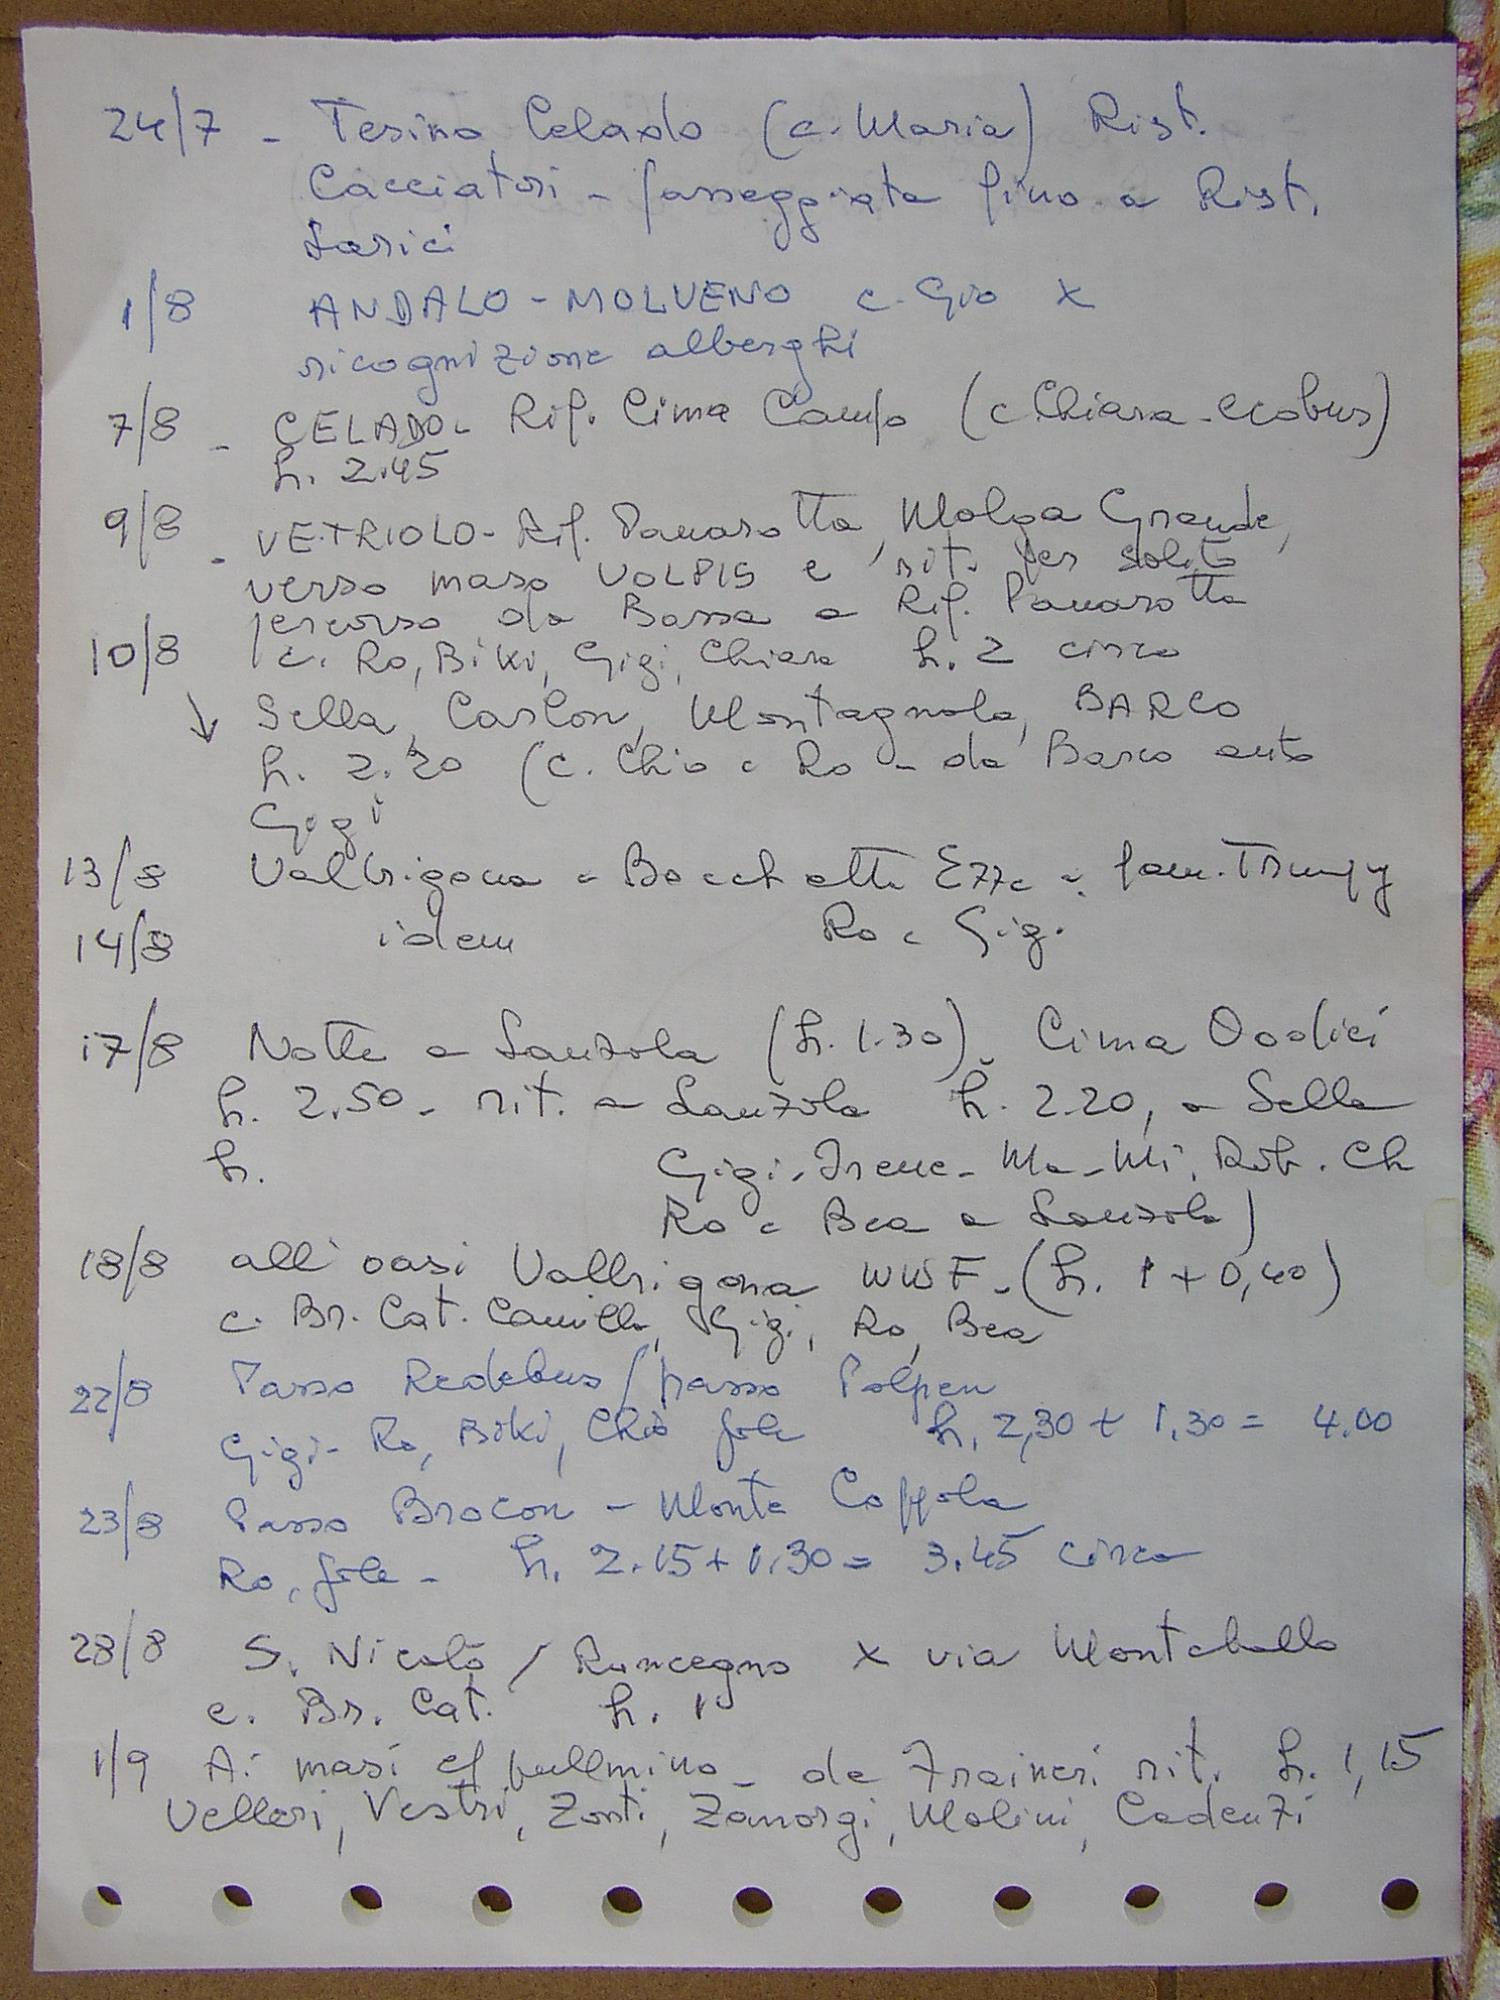 24/7 - Tesino Celado (c. Maria) Rist.
Cacciatori - passeggiata fino a Rist.
Larici
1/8 ANDALO - MOLVENO c. Gio x
ricognizione alberghi
7/8 - CELADO - Rif. Cima Campo (c. Chiara - ecobus)
h. 2.45
9/8 - VETRIOLO - Rif. Panarotta, Malga Grande,
verso maso VOLPIS e rit. per solito
percorso da Bassa a Rif. Panarotta
10/8 c. Ro, Biki, Gigi, Chiara h. 2 circa
↓ Sella, Carlon, Montagnola, BARCO
h. 2.20 (c. Chia e Ro - da Barco auto
Gigi
13/8 Valtrigona e Bocchetta Ezze c. fam. Trumpy
14/8 idem Ro e Gigi
17/8 Notte a Lanzola (h. 1.30). Cima Dodici
h. 2.50 - rit. a Lanzola h. 2.20, a Sella
h. Gigi - Irene - Ma - Mi. Rob. Ch
Ro e Bea a Lanzola)
18/8 all'oasi Valtrigona WWF - (h. 1 + 0,40)
c. Br. Cat. Camilla, Gigi, Ro, Bea
22/8 Passo Redebus / passo Polpen
Gigi - Ro, Biki, Chiò h. 2,30 + 1.30 = 4.00
23/8 Passo Brocon - Monte Coppola
Ro, h. 2.15 + 1.30 = 3.45 circa
28/8 S. Nicolò / Roncegno x via Montebello
c. Br. Cat. h. 1
1/9 Ai masi c/ pullmino - da Fraineri rit. h. 1,15
Velleri, Vestri, Zonti, Zanorgi, Molini, Cadenzi